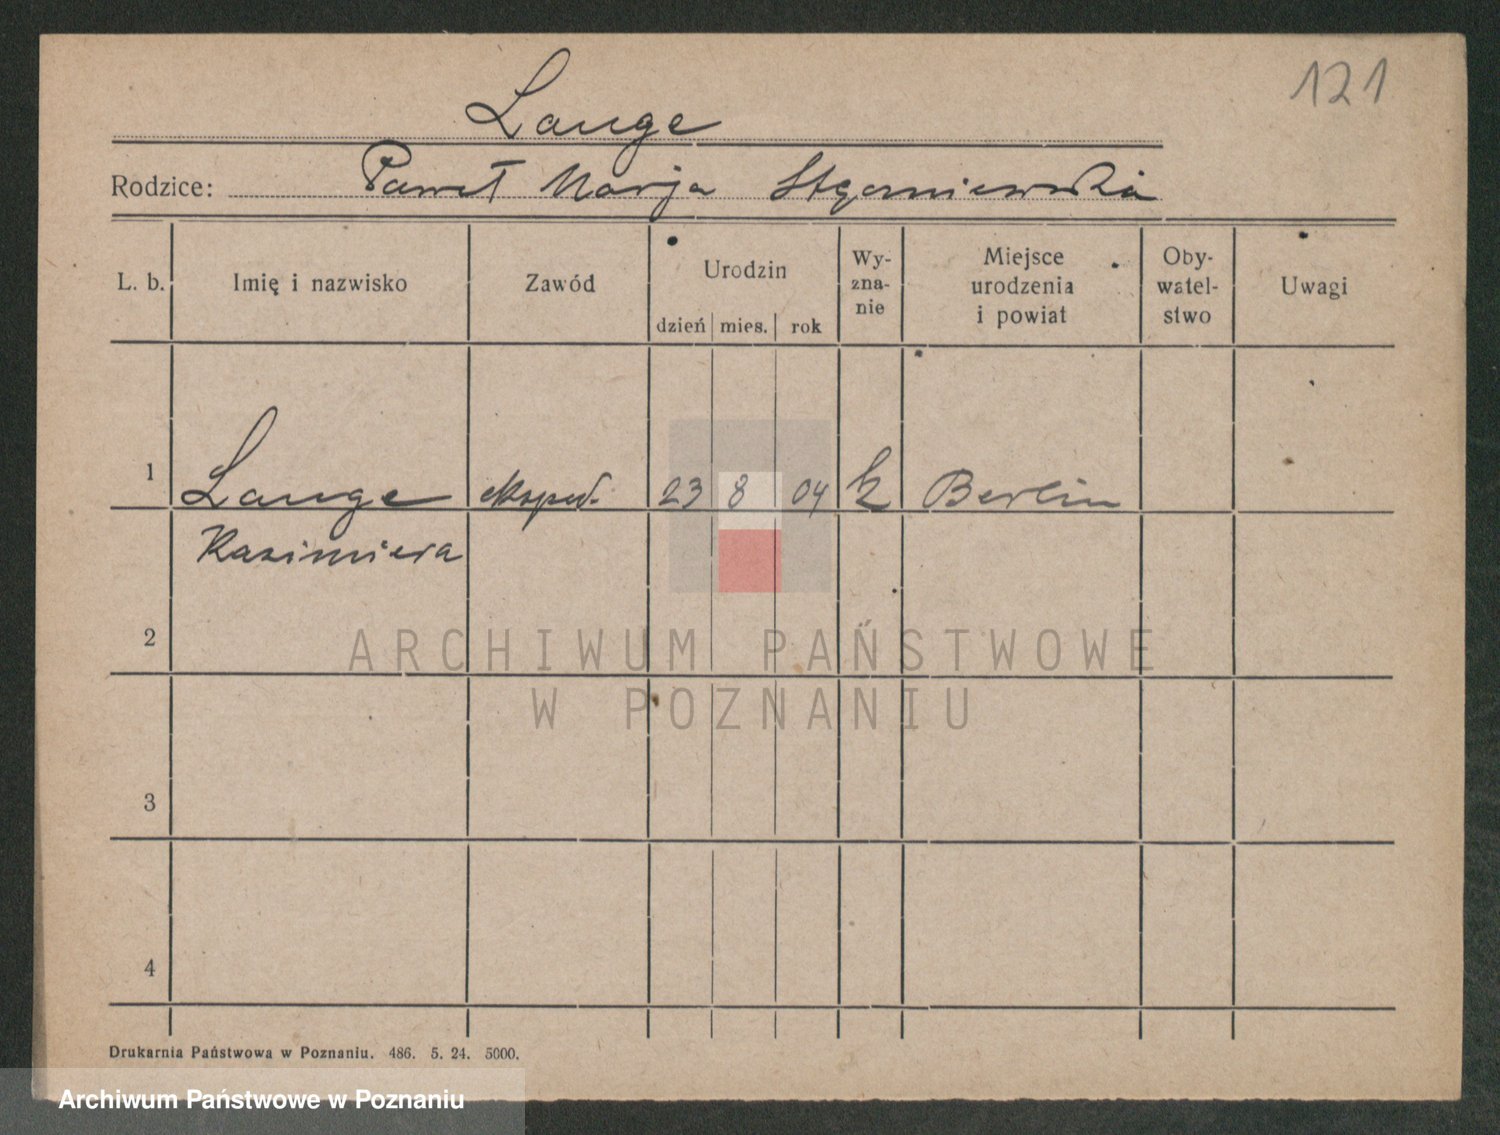 121
Lange
Rodzice: Paweł Marja
L. b. Imię i nazwisko Zawód Urodzin dzień mies. rok Wy-zna-nie Miejsce urodzenia i powiat Oby-watel-stwo Uwagi
1 Lange eksped. 23 8 04 k Berlin
Kazimiera
2
3
4
ARCHIWUM PAŃSTWOWE
W POZNANIU
Drukarnia Państwowa w Poznaniu. 486. 5. 24. 5000.
Archiwum Państwowe w Poznaniu